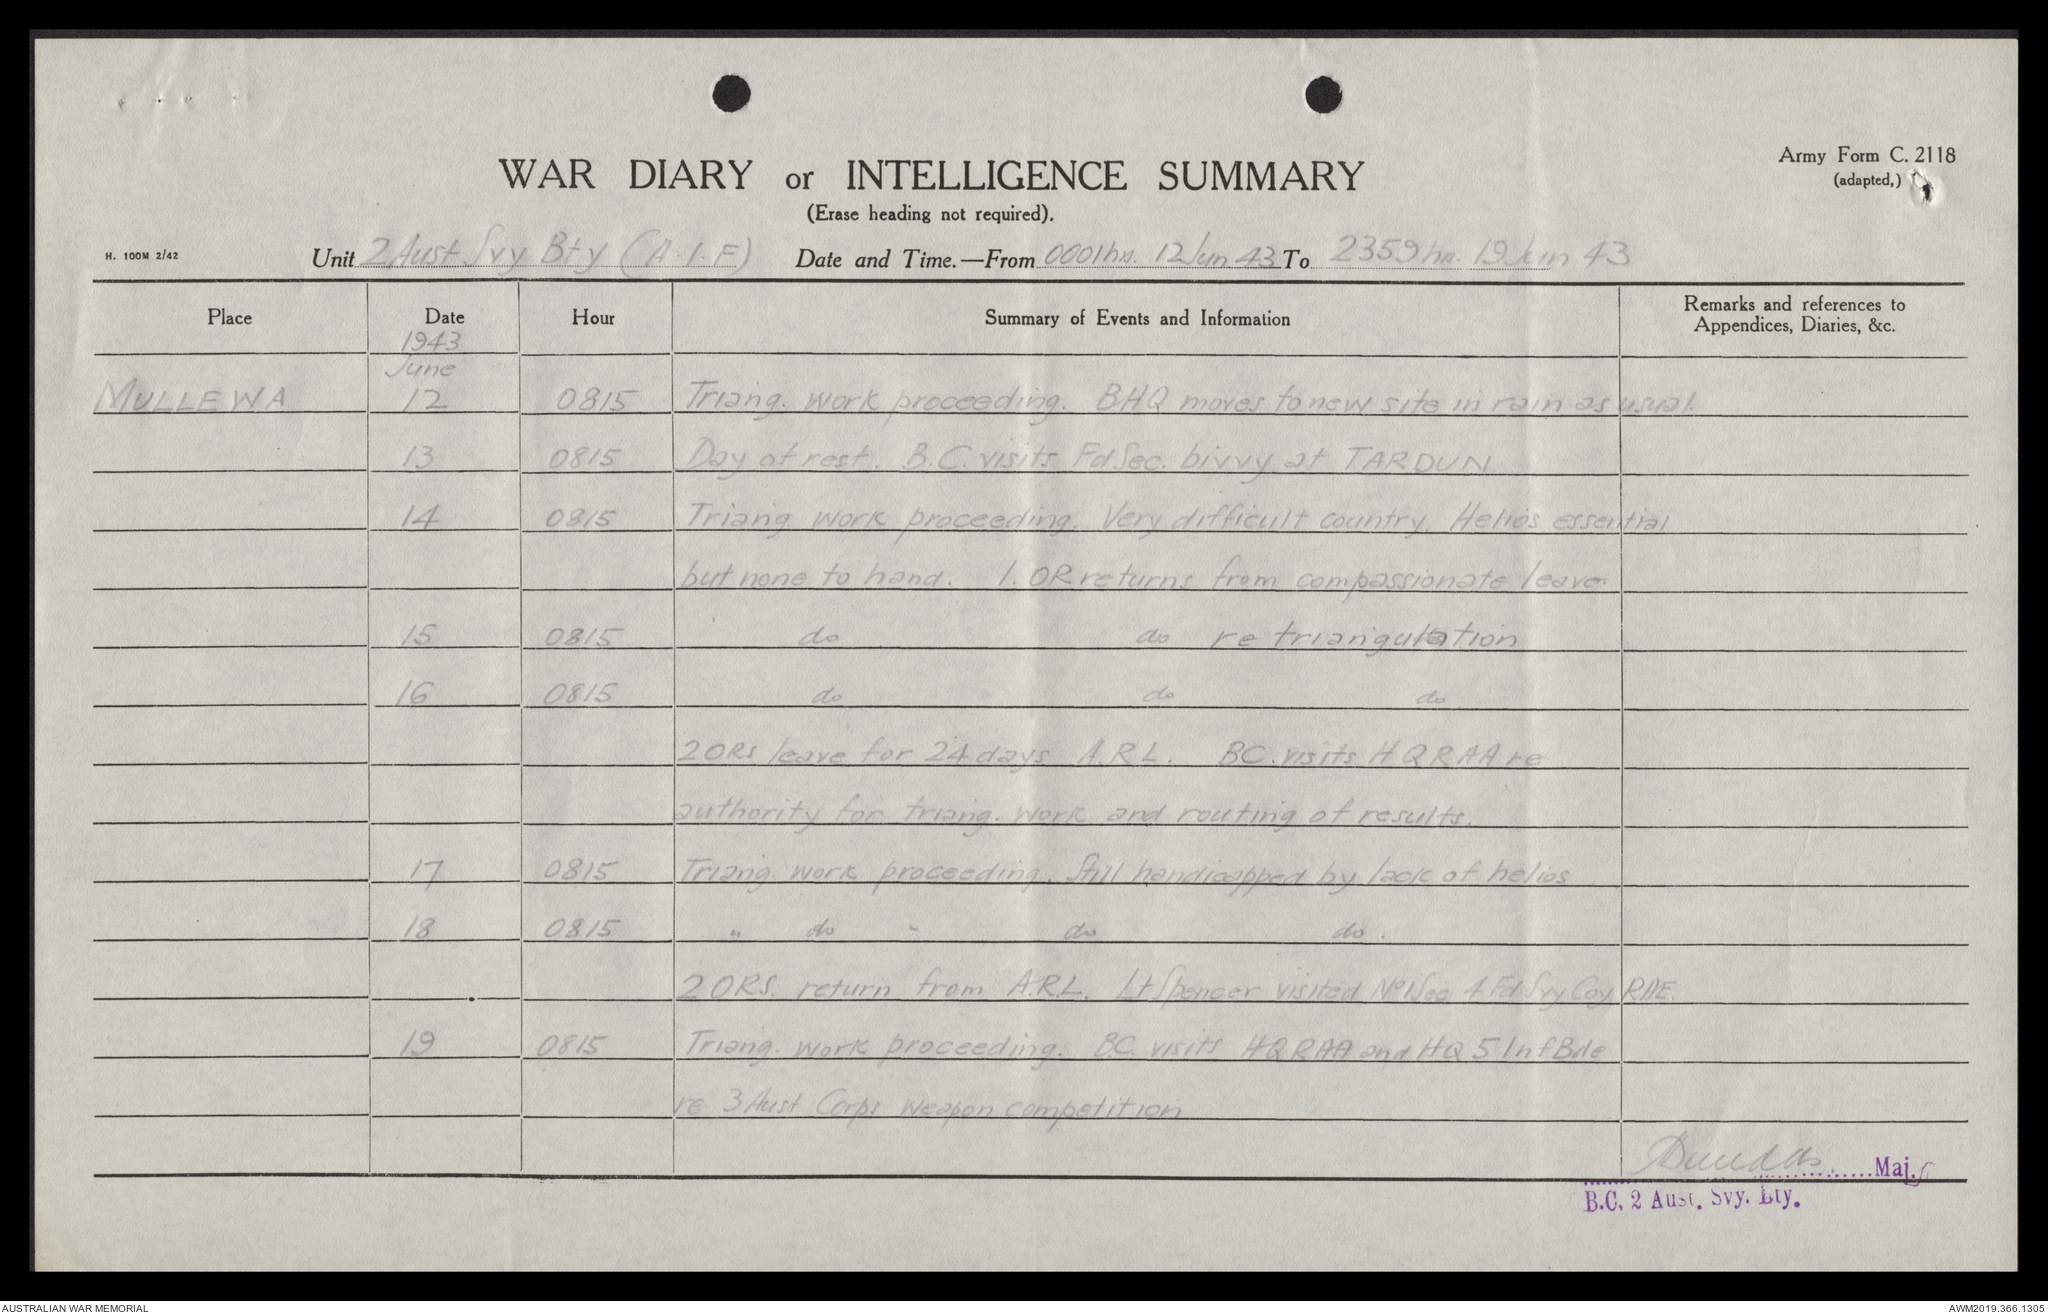 WAR DIARY or INTELLIGENCE SUMMARY
Army Form C. 2118
(adapted,)
(Erase heading not required).
H. 100M 2/42
Unit 2 Aust Svy Bty (A.I.F) Date and Time.—From 0001hrs. 12 Jun 43 To 2359 hrs. 19 Jun 43
Place Date Hour Summary of Events and Information Remarks and references to
Appendices, Diaries, &c.
1943
June
MULLEWA 12 0815 Triang. work proceeding. BHQ moves to new site in rain as usual.
13 0815 Day of rest. B.C. visits Fd Sec. bivvy at TARDUN
14 0815 Triang. work proceeding. Very difficult country. Helios essential
but none to hand. 1. OR returns from compassionate leave.
15 0815 do do re triangulation
16 0815 do do do
2 ORs leave for 24 days A.R.L. BC. visits HQRAA re
authority for triang. work and routing of results.
17 0815 Triang. work proceeding. Still handicapped by lack of helios
18 0815 " do " do do.
2 ORS. return from A.R.L. Lt Spencer visited No 1 Sec 4 Fd Svy Coy RAE.
19 0815 Triang. work proceeding. BC. visits HQRAA and HQ 5 Inf Bde
re 3 Aust Corps weapon competition
Maj.
B.C. 2 Aust. Svy. Bty.
AUSTRALIAN WAR MEMORIAL AWM2019.366.1305